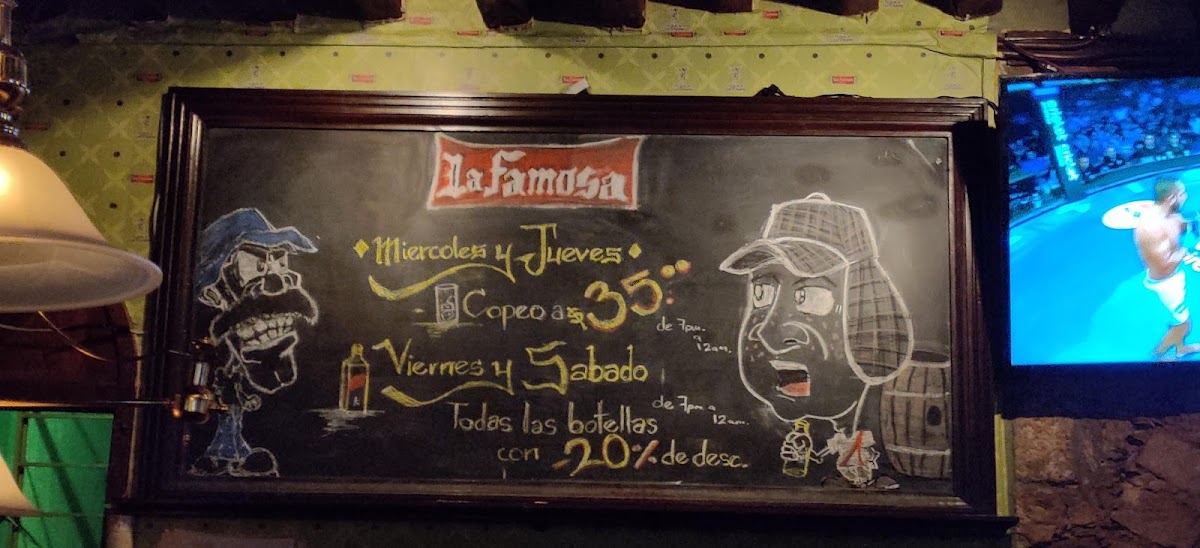 La Famosa
Miercoles y Jueves
Copeo a $35.00
de 7pm. a 12am.
Viernes y Sabado
Todas las botellas
de 7pm a 12am.
con -20% de desc.